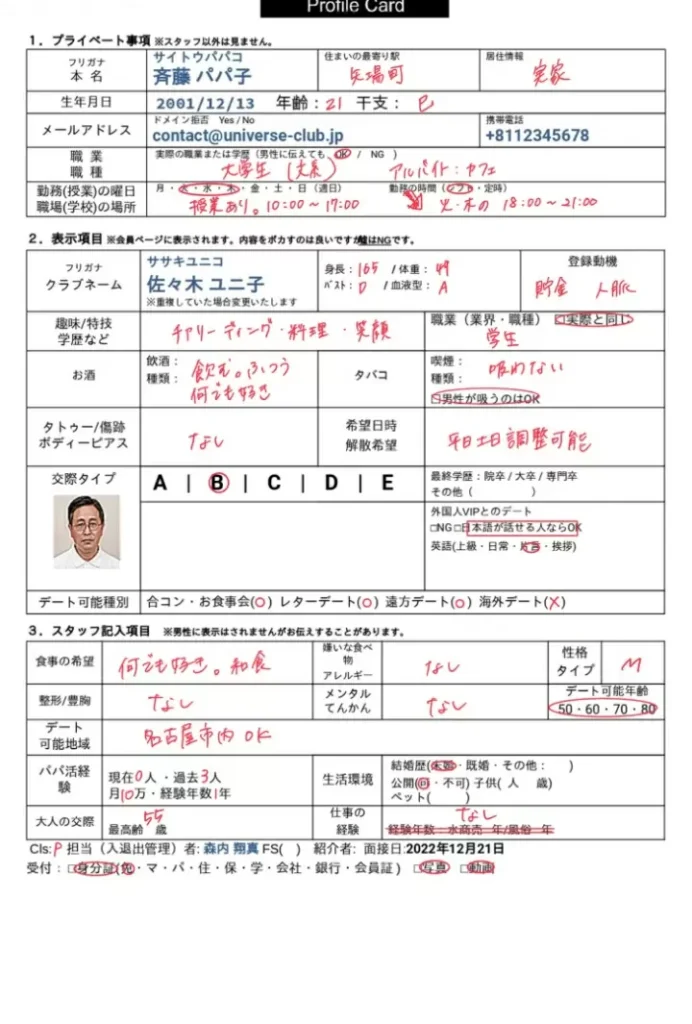 Profile Card
1. プライベート事項 ※スタッフ以外は見ません。
フリガナ
本 名
サイトウパパコ
斉藤 パパ子
住まいの最寄り駅
矢場町
居住情報
実家
生年月日
2001/12/13 年齢:21 干支:巳
メールアドレス
ドメイン拒否 Yes / No
contact@universe-club.jp
携帯電話
+8112345678
職 業
職 種
実際の職業または学歴(男性に伝えても、OK / NG )
大学生
アルバイト:カフェ
勤務(授業)の曜日
職場(学校)の場所
月・火・水・木・金・土・日(週日)
授業あり。10:00~17:00
勤務の時間(シフト・定時)
火・木の 18:00~21:00
2. 表示項目 ※会員ページに表示されます。内容をボカすのは良いですが嘘はNGです。
フリガナ
クラブネーム
ササキユニコ
佐々木 ユニ子
※重複していた場合変更いたします
身長:165 / 体重:49
バスト:D / 血液型:A
登録動機
貯金 人脈
趣味/特技
学歴など
チアリーディング・料理・笑顔
職業(業界・職種) □実際と同じ
学生
お酒
飲酒:
種類:
飲む。ふつう
何でも好き
タバコ
喫煙:
種類:
吸わない
□男性が吸うのはOK
タトゥー/傷跡
ボディーピアス
なし
希望日時
解散希望
平日土日調整可能
交際タイプ
A | B | C | D | E
最終学歴:院卒 / 大卒 / 専門卒
その他( )
外国人VIPとのデート
□NG □日本語が話せる人ならOK
英語(上級・日常・片言・挨拶)
デート可能種別
合コン・お食事会(○) レターデート(○) 遠方デート(○) 海外デート(×)
3. スタッフ記入項目 ※男性に表示はされませんがお伝えすることがあります。
食事の希望
何でも好き。和食
嫌いな食べ
物
アレルギー
なし
性格
タイプ
M
整形/豊胸
なし
メンタル
てんかん
なし
デート可能年齢
50・60・70・80
デート
可能地域
名古屋市内 OK
パパ活経
験
現在0人・過去3人
月10万・経験年数1年
生活環境
結婚歴(未婚・既婚・その他: )
公開(可・不可) 子供( 人 歳)
ペット( )
大人の交際
55
最高齢 歳
仕事の
経験
なし
経験年数:水商売 年/風俗 年
Cls:P 担当(入退出管理)者: 森内 翔真 FS( ) 紹介者: 面接日:2022年12月21日
受付: □身分証(免・マ・パ・住・保・学・会社・銀行・会員証) □写真 □動画